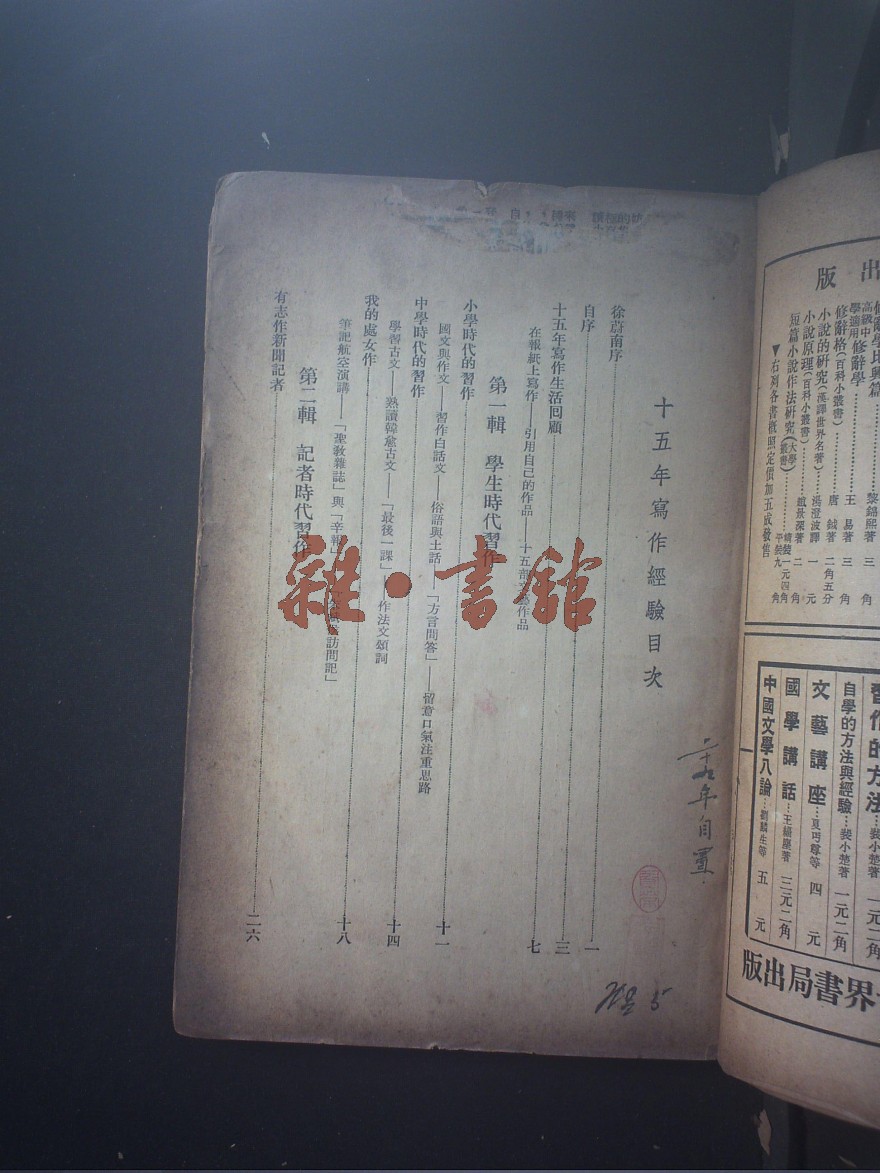 出版
修辭學比興篇……黎錦熙著 三角
高級中學適用 修辭學……王易著 三角
修辭格(百科小叢書)……唐鉞著 二角五分
小說的研究(漢譯世界名著)……湯澄波譯 一元
小說原理(百科小叢書)
短篇小說作法研究(大學叢書)
▼右列各書槪照定價加五成發售
習作的方法……裴小楚著 一元二角
自學的方法與經驗……裴小楚著 一元二角
文藝講座……夏丏尊等 四元
國學講話……王緇塵著 三元二角
中國文學八論……劉麟生等 五元
界書局出版
十五年寫作經驗目次
徐蔚南序……一
自序……三
十五年寫作生活回顧……七
在報紙上寫作——引用自己的作品——十五部文藝作品
第一輯 學生時代習作
小學時代的習作……十一
國文與作文——習作白話文——俗語與土話——「方言問答」——留意口氣注重思路
中學時代的習作……十四
學習古文——熟讀韓愈古文——「最後一課」——作法文頌詞
我的處女作……十八
筆記航空演講——「聖敎雜誌」與「辛報」
訪問記」
第二輯 記者時代習作
有志作新聞記者……二六
年自置
雜·書館